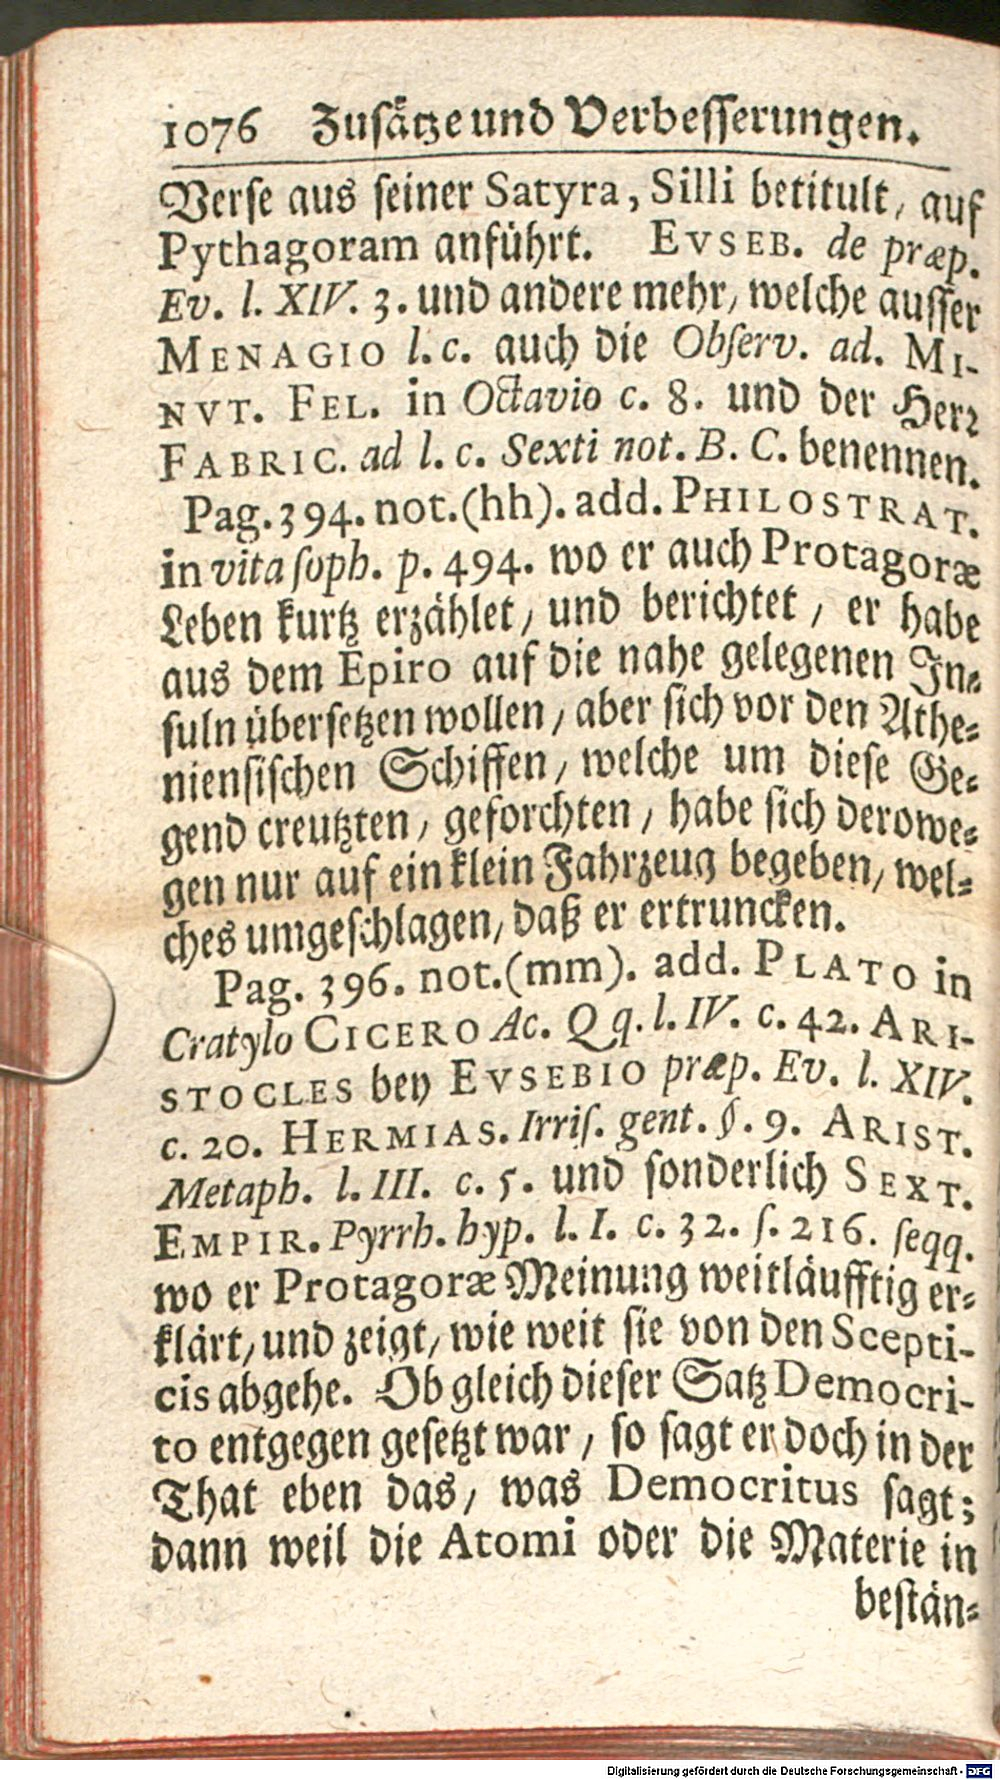 1076 Zusätze und Verbesserungen.
Verse aus seiner Satyra, Silli betitult, auf
Pythagoram anführt. EVSEB. de præp.
Ev. l. XIV. 3. und andere mehr, welche ausser
MENAGIO l. c. auch die Observ. ad. MI-
NVT. FEL. in Octavio c. 8. und der Herr
FABRIC. ad l. c. Sexti not. B. C. benennen.
Pag. 394. not. (hh). add. PHILOSTRAT.
in vita soph. p. 494. wo er auch Protagoræ
Leben kurtz erzählet, und berichtet, er habe
aus dem Epiro auf die nahe gelegenen In-
suln übersetzen wollen, aber sich vor den Athe-
niensischen Schiffen, welche um diese Ge-
gend creutzten, geforchten, habe sich derowe-
gen nur auf ein klein Fahrzeug begeben, wel-
ches umgeschlagen, daß er ertruncken.
Pag. 396. not. (mm). add. PLATO in
Cratylo CICERO Ac. Qq. l. IV. c. 42. ARI-
STOCLES bey EVSEBIO præp. Ev. l. XIV.
c. 20. HERMIAS. Irris. gent. §. 9. ARIST.
Metaph. l. III. c. 5. und sonderlich SEXT.
EMPIR. Pyrrh. hyp. l. I. c. 32. s. 216. seqq.
wo er Protagoræ Meinung weitläufftig er-
klärt, und zeigt, wie weit sie von den Scepti-
cis abgehe. Ob gleich dieser Satz Democri-
to entgegen gesetzt war, so sagt er doch in der
That eben das, was Democritus sagt;
dann weil die Atomi oder die Materie in
bestän-
Digitalisierung gefördert durch die Deutsche Forschungsgemeinschaft - DFG